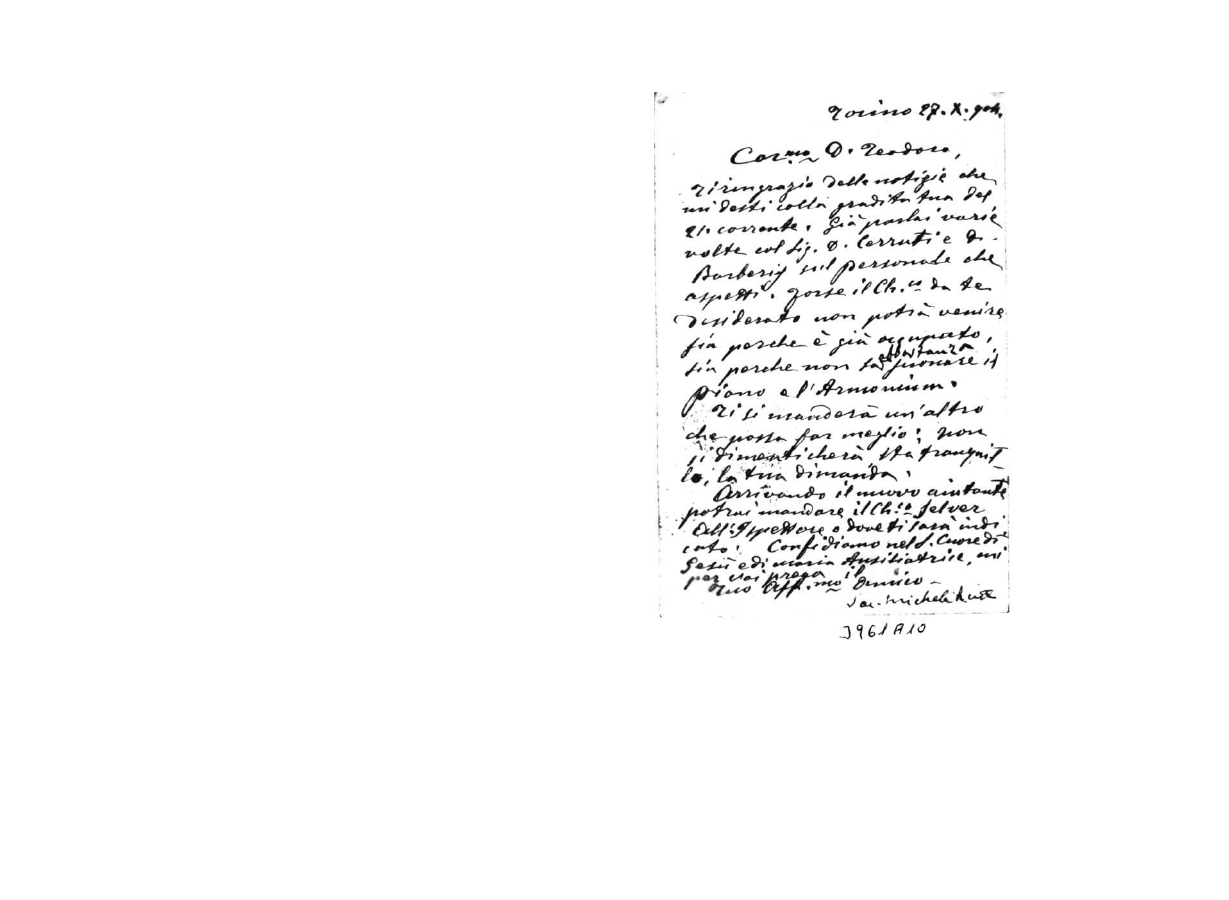 Torino 27. X. 904.
Car.mo D. Teodoro,
Ti ringrazio delle notizie che
mi desti colla gradita tua del
21. corrente. Già parlai varie
volte col Sig. D. Cerruti e D.
Barberis sul personale che
aspetti. Forse il Ch.co da te
desiderato non potrà venire
sia perche è già occupato,
sia perche non sa abbastanza suonare il
piano e l'Armonium.
Ti si manderà un'altro
che possa far meglio; non
si dimenticherà sta tranquil
lo, la tua dimanda.
Arrivando il nuovo aiutante
potrai mandare il Ch.co Selver
All'Ispettore o dove ti sarà indi
cato. Confidiamo nel S. Cuore di
Gesù e di Maria Ausiliatrice, mi
per voi prega il
Tuo Aff.mo Amico
Sac. Michele Rua
3961A10